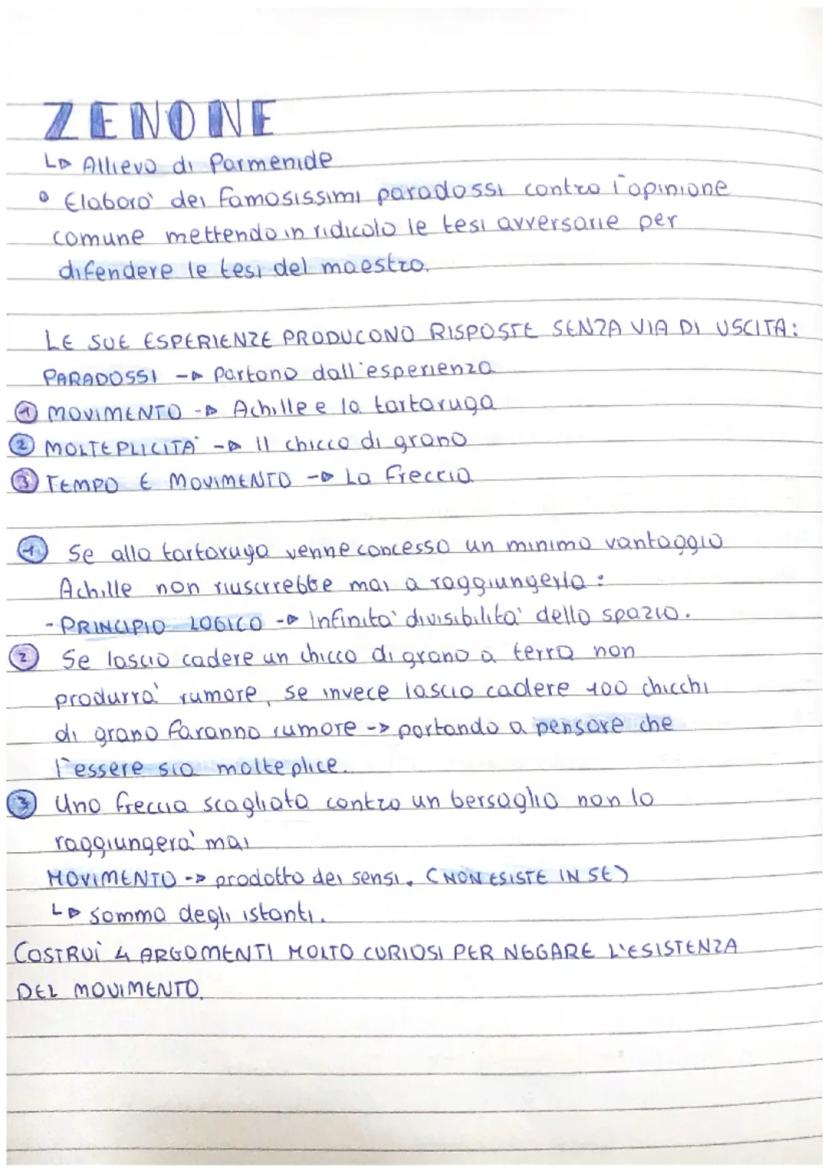 ZENONE
↳ Allievo di Parmenide
• Elaborò dei famosissimi paradossi contro l'opinione
comune mettendo in ridicolo le tesi avversarie per
difendere le tesi del maestro.
LE SUE ESPERIENZE PRODUCONO RISPOSTE SENZA VIA DI USCITA:
PARADOSSI -> Partono dall'esperienza
1 MOVIMENTO -> Achille e la tartaruga
2 MOLTEPLICITA' -> Il chicco di grano
3 TEMPO E MOVIMENTO -> La Freccia
1 Se alla tartaruga venne concesso un minimo vantaggio
Achille non riuscirebbe mai a raggiungerla:
- PRINCIPIO LOGICO -> Infinita' divisibilita' dello spazio.
2 Se lascio cadere un chicco di grano a terra non
produrra' rumore, se invece lascio cadere 100 chicchi
di grano faranno rumore -> portando a pensare che
l'essere sia molteplice.
3 Una freccia scagliata contro un bersaglio non lo
raggiungera' mai
MOVIMENTO -> prodotto dei sensi. (NON ESISTE IN SE)
↳ somma degli istanti.
COSTRUÌ 4 ARGOMENTI MOLTO CURIOSI PER NEGARE L'ESISTENZA
DEL MOVIMENTO.